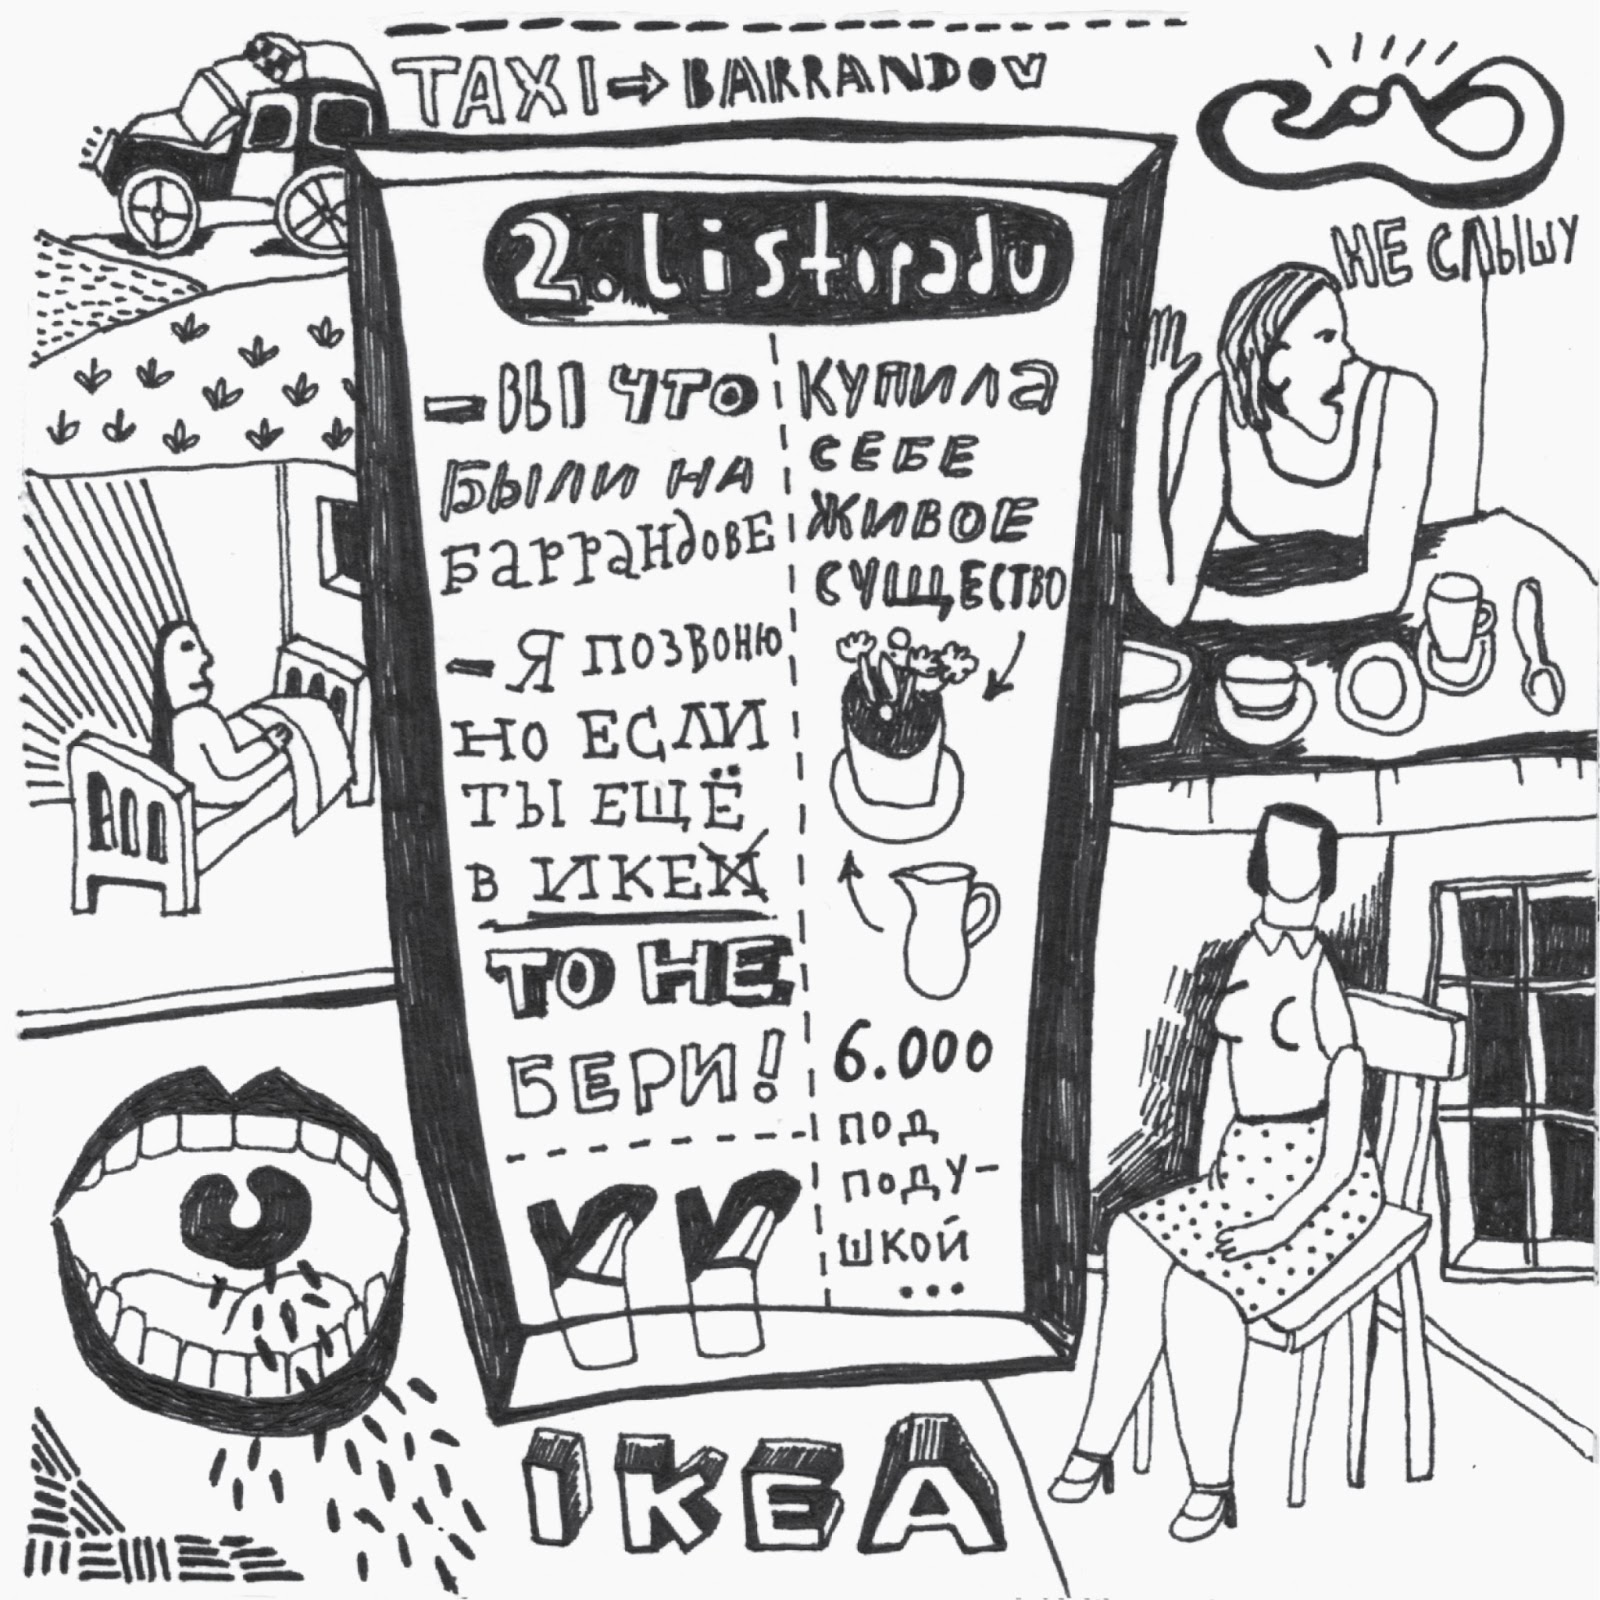 TAXI → BARRANDOV
НЕ СЛЫШУ
2. listopadu
– ВЫ ЧТО
БЫЛИ НА
БАРРАНДОВЕ
– Я ПОЗВОНЮ
НО ЕСЛИ
ТЫ ЕЩЁ
В ИКЕЙ
ТО НЕ
БЕРИ!
КУПИЛА
СЕБЕ
ЖИВОЕ
СУЩЕСТВО
6.000
ПОД
ПОДУ-
ШКОЙ
...
IKEA